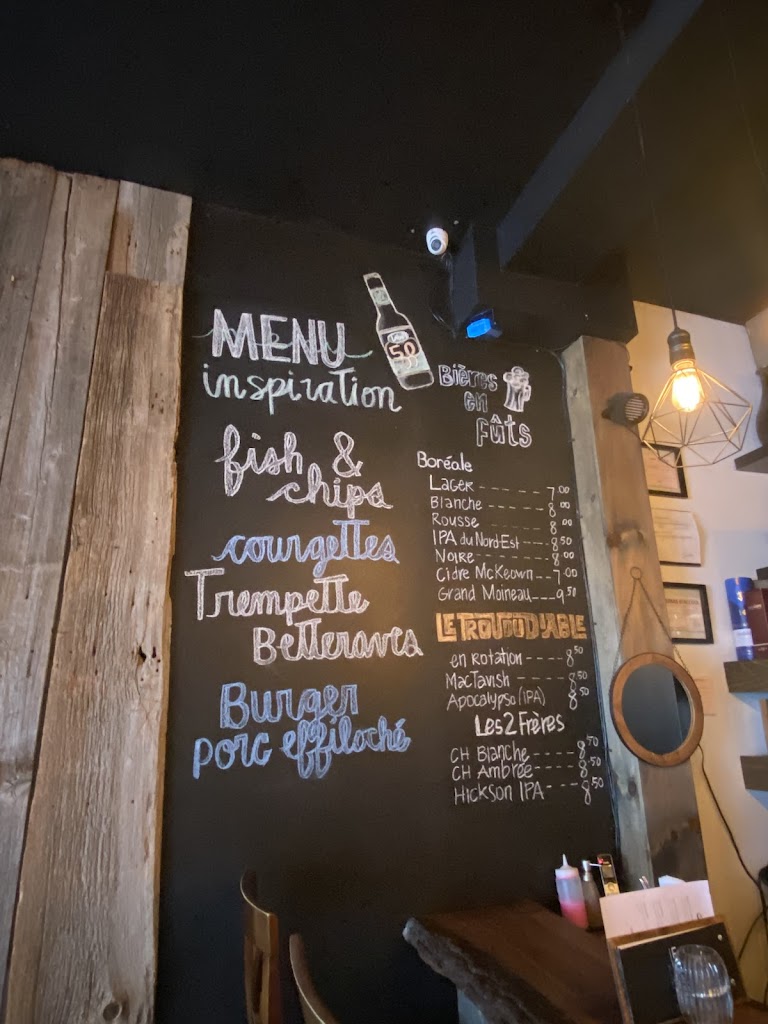 MENU
inspiration
50
fish &
chips
courgettes
Trempette
Betteraves
Burger
porc effiloché
Bières
en
fûts
Boréale
Lager ------- 7.00
Blanche ------- 8.00
Rousse ------- 8.00
IPA du Nord-Est ---- 8.50
Noire ------- 8.00
Cidre McKeown -- 7.00
Grand Moineau --- 9.50
LE TROU DU DIABLE
en rotation ---- 8.50
MacTavish ---- 8.50
Apocalypso (IPA) 8.50
Les 2 Frères
CH Blanche ---- 8.70
CH Ambrée --- 8.50
Hickson IPA --- 8.50